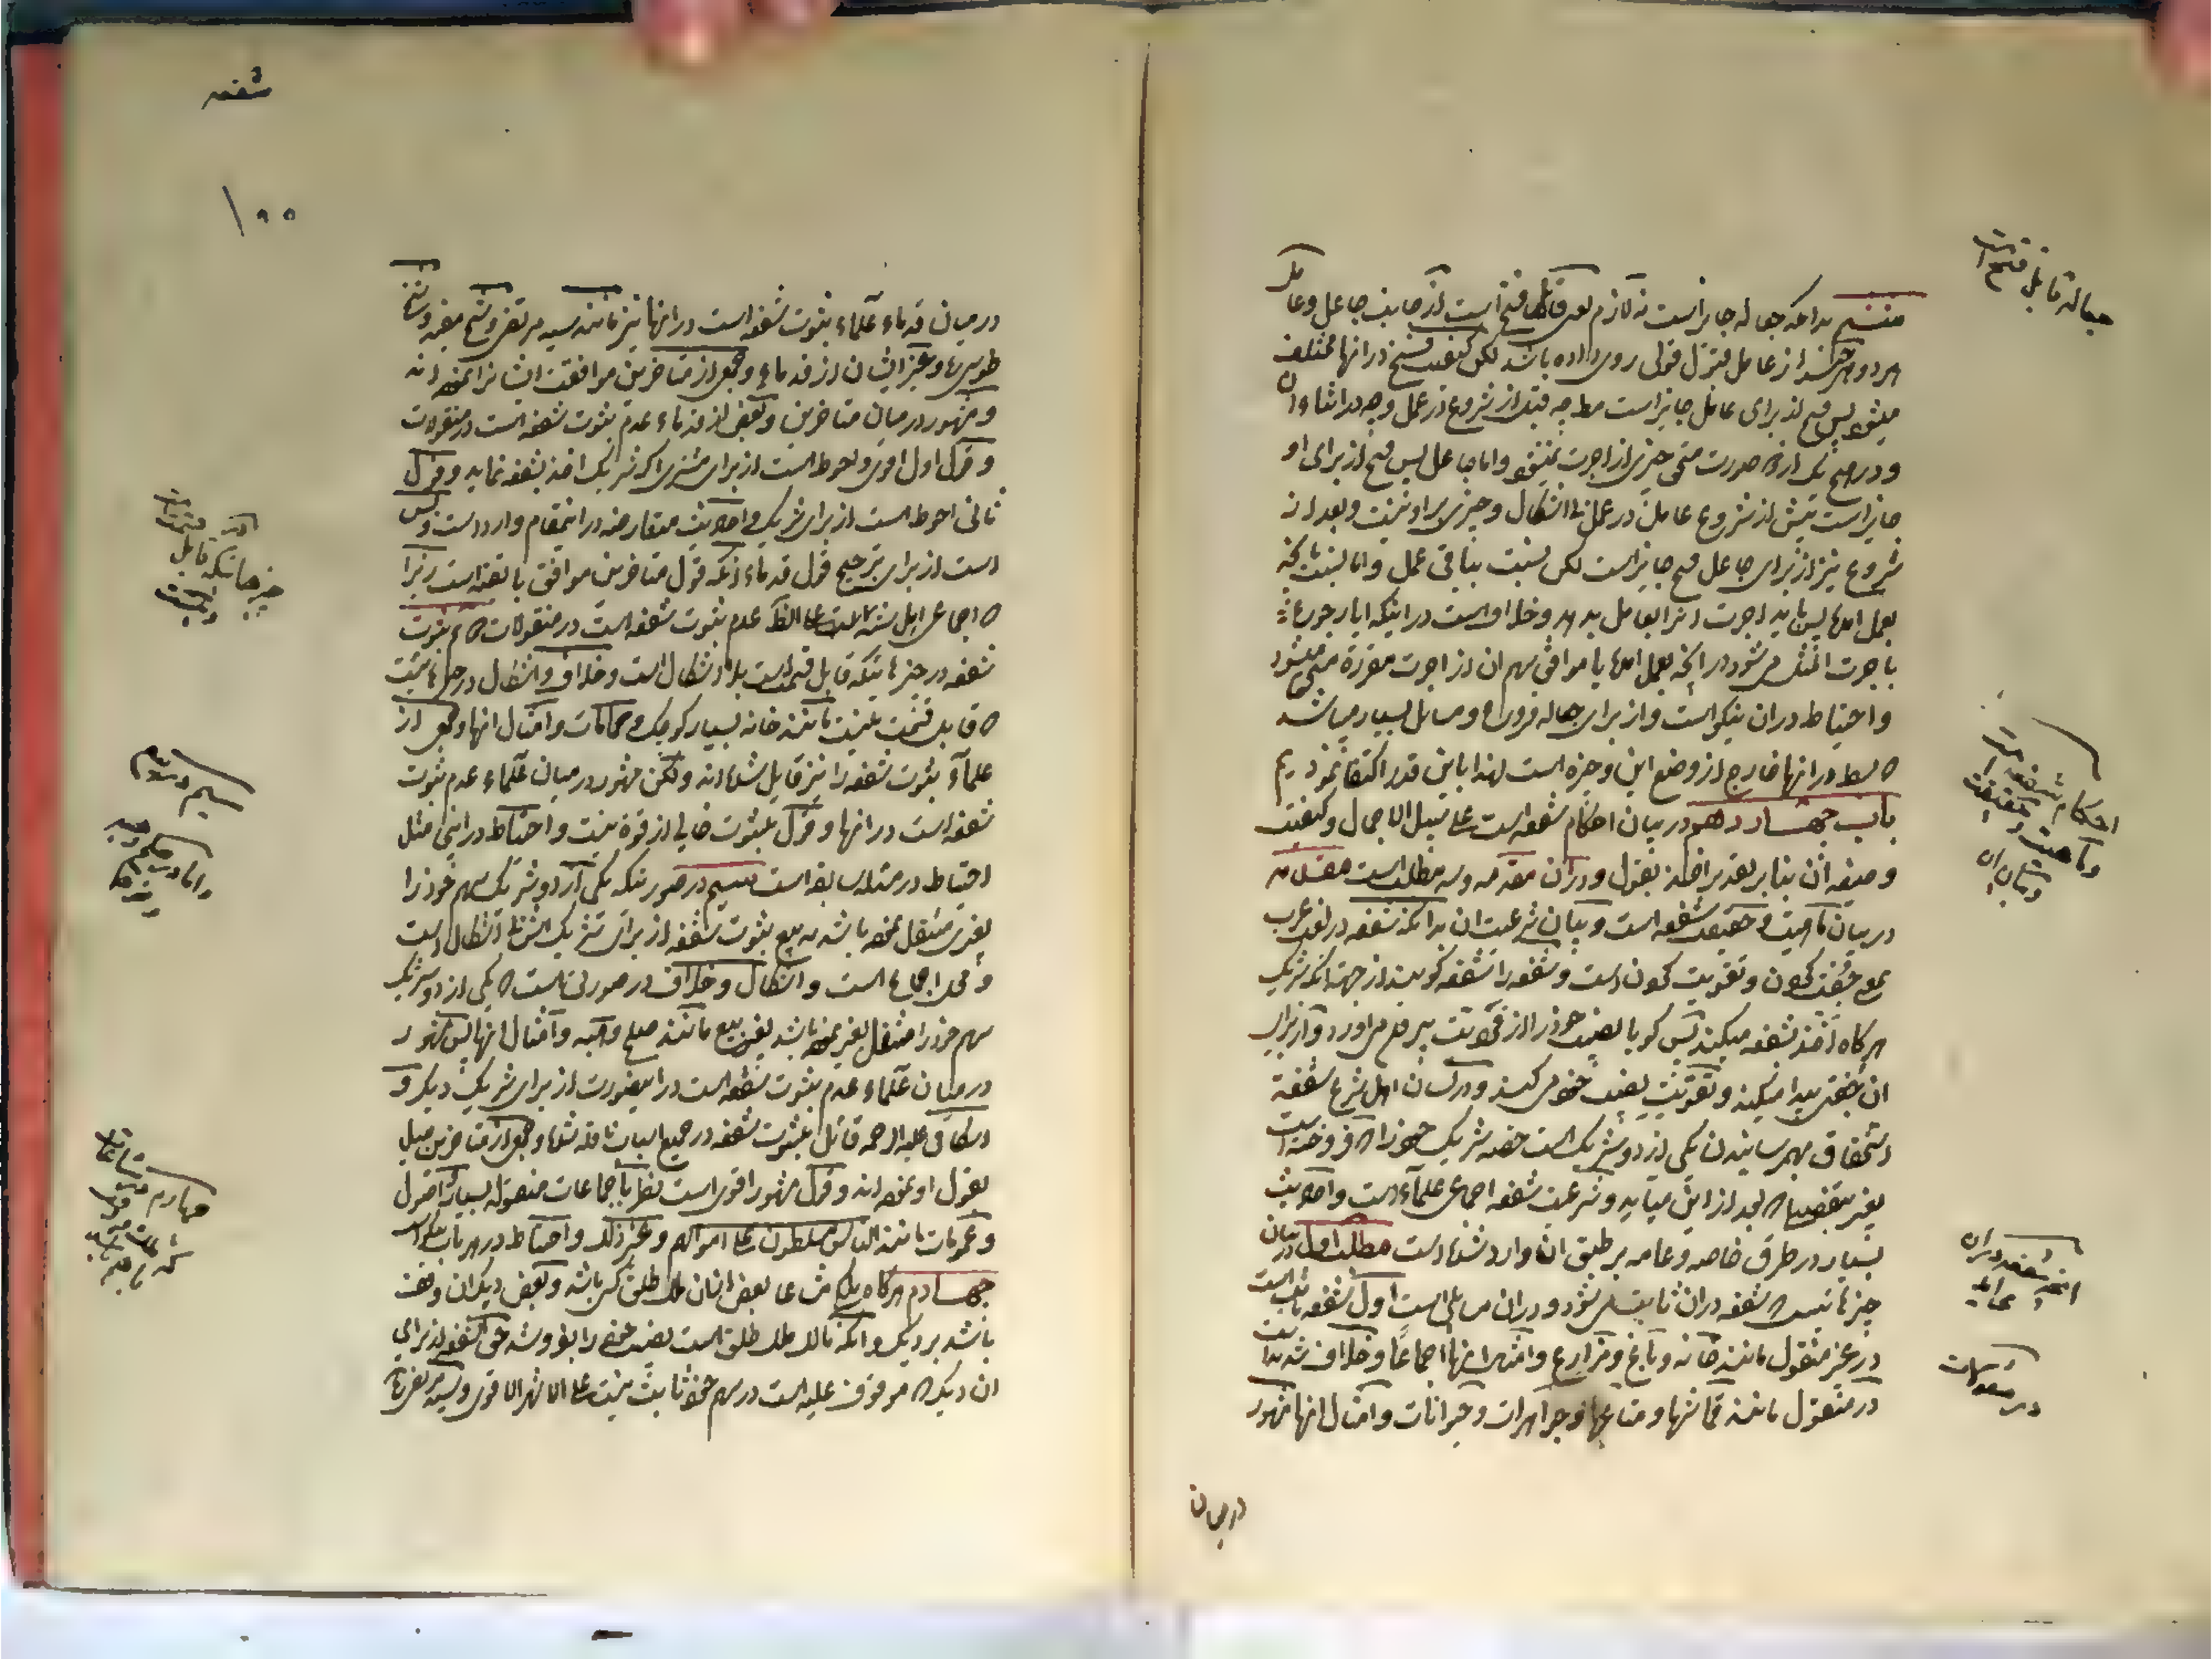 جعاله قابل فسخ است
بدانکه جعاله جایز است نه لازم یعنی قابل فسخ است از جانب جاعل و عامل
هر دو هر چند از عامل قبول قولی روی داده باشد لکن کیفیت فسخ در آنها مختلف
میشود پس فسخ از برای عامل جایز است مط چه قبل از شروع در عمل و چه در اثناء ان
و در هیچ یک از صورت مستحق چیزی از اجرت نمیشود و اما جاعل پس فسخ از برای او
جایز است پیش از شروع عامل در عمل بلا اشکال و چیزی بر او نیست و بعد از
شروع نیز از برای جاعل فسخ جایز است لکن نسبت بباقی عمل و اما نسبت بانچه
بعمل امده پس باید اجرت انرا بعامل بدهد و خلاف است در اینکه ایا رجوع
باجرت المثل می شود در انچه بعمل امده یا موافق سهم ان از اجرت مقرره مستحق میشود
و احتیاط در ان نیکو است و از برای جعاله فروع و مسایل بسیار میباشد
که بسط در انها خارج از وضع این وجیزه است لهذا باین قدر اکتفا نمودیم
باب چهاردهم در بیان احکام شفعه است علی سبیل الاجمال و کیفیت
و صیغه ان بنا بر تقدیر اخذ بقول و در ان مقدمه و سه مطلب است مقدمه
در بیان ماهیت و حقیقت شفعه است و بیان شرعیت ان بدانکه شفعه در لغت عرب
بمعنی جفت کردن و تقویت کردن است و شفعه را شفعه گویند از جهت انکه شریک
هر گاه اخذ بشفعه میکند پس گویا نصیب خود را از فردیت بیرون می اورد و از برای
ان جفتی پیدا میکند و تقویت نصیب خود می کند و در لسان اهل شرع شفعه
استحقاق بهم رسانیدن یکی از دو شریک است حصه شریک خود را که فروخته است
بغیر بتفصیلی که بعد از این میاید و شرعیت شفعه اجماعی علماء است و احادیث
بسیار در طرق خاصه و عامه بر طبق ان وارد شده است مطلب اول در بیان
چیزهائیست که شفعه در ان ثابت می شود و در ان مسائلی است اول شفعه ثابت است
در غیر منقول مانند خانه و باغ و مزارع و امثال اینها اجماعا و خلاف شده
در منقول مانند قماشها و متاعها و جواهرات و حیوانات و امثال انها مشهور
در میان
احکام شفعه است
و ماهیت و حقیقت
و بیان ان
انچه شفعه در ان
می اید
در منقولات
شفعه
۱۰۰
در میان قدماء علماء ثبوت شفعه است در انها نیز مانند سید مرتضی و شیخ مفید و شیخ
طوسی و غیر ایشان از قدماء و جمعی از متاخرین موافقت ایشان را نموده اند
و مشهور در میان متاخرین و بعضی از قدماء عدم ثبوت شفعه است در منقولات
و قول اول اقوی و احوط است از برای مشتری اگر شریک اخذ بشفعه نماید و قول
ثانی احوط است از برای شریک و احادیث متعارضه در اینمقام وارد است و بس
است از برای ترجیح قول قدماء انکه قول متاخرین موافق با تقیه است زیرا
که اجماعی اهل سنت علی الظ عدم ثبوت شفعه است در منقولات ثبوت
شفعه در چیزهائیکه قابل قسمت است بلا اشکال است و خلاف و اشکال در چیزهائیست
که قابل قسمت نیست مانند خانه بسیار کوچک و حمامات و امثال انها و جمعی از
علماء ثبوت شفعه را نیز قایل شده اند و لکن مشهور در میان علماء عدم ثبوت
شفعه است در انها و قول بثبوت خالی از قوة نیست و احتیاط در اینجا مثل
احتیاط در مسئله سابقه است سیم در صورتیکه یکی از دو شریک سهم خود را
بغیری منتقل نموده باشد به بیع ثبوت شفعه از برای شریک بلا اشکال است
و محل اجماع است و اشکال و خلاف در صورتی است که یکی از دو شریک
سهم خود را منتقل بغیر نموده باشد بغیر بیع مانند صلح و هبه و امثال انها پس مشهور
در میان علماء عدم ثبوت شفعه است در اینصورت از برای شریک دیگر و
اسکافی علیه الرحمه قائل بثبوت شفعه در جمیع اسباب ناقله شده و جمعی از متاخرین میل
بقول او نموده اند و قول مشهور اقوی است نظر باجماعات منقوله بسیار و اصول
و عمومات مانند الناس مسلطون علی اموالهم و غیر ذلک و احتیاط در هر باب نیکو است
چهارم هر گاه ملک مشاعا بعض انسان ملک طلق کسی باشد و بعض دیگر ان وقف
باشد بر دیگری و انکه مالک ملک طلق است نصیب خود را بفروشد حق الشفعه از برای
ان دیگر که موقوف علیه است در سهم خود ثابت نیست علی الاشهر الاقوی و سید مرتضی
چیزهائیکه قابل
قسمت نیست
سیم در سهم
چهارم